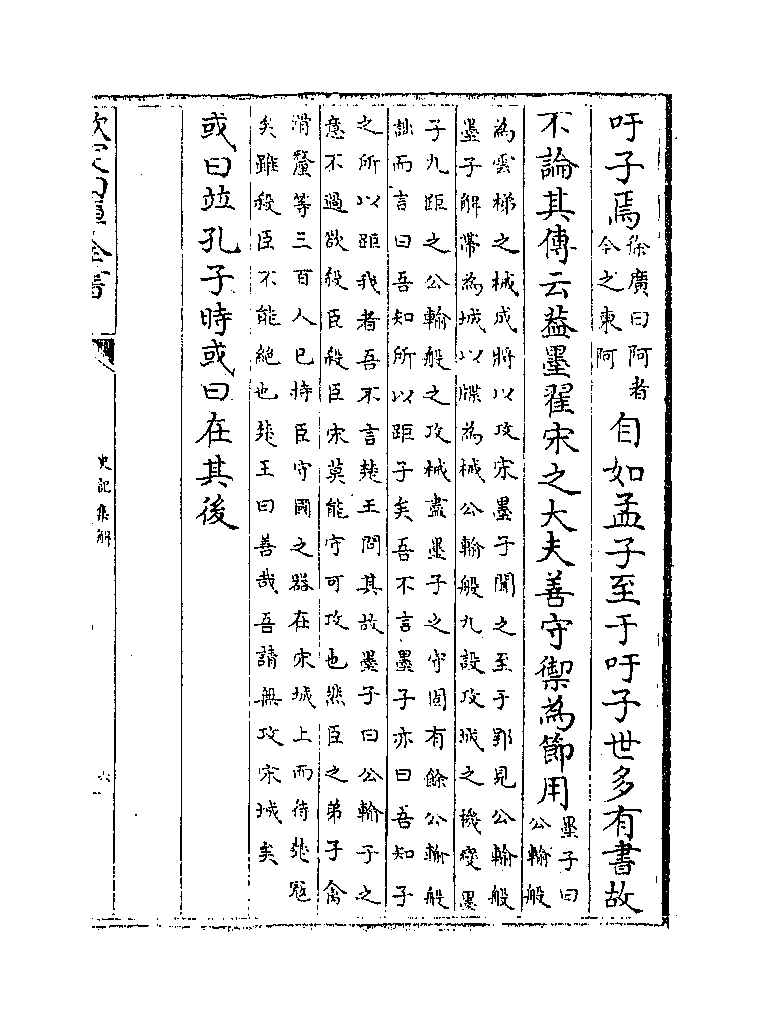 吁子焉徐廣曰阿者今之東阿自如孟子至于吁子世多有書故
不論其傳云葢墨翟宋之大夫善守禦為節用墨子曰公輸般
為雲梯之械成將以攻宋墨子聞之至于郢見公輸般
墨子解帶為城以牒為械公輸般九設攻城之機變墨
子九距之公輸般之攻械盡墨子之守固有餘公輸般
詘而言曰吾知所以距子矣吾不言墨子亦曰吾知子
之所以距我者吾不言楚王問其故墨子曰公輸子之
意不過欲殺臣殺臣宋莫能守可攻也然臣之弟子禽
滑釐等三百人已持臣守國之器在宋城上而待楚寇
矣雖殺臣不能絶也楚王曰善哉吾請無攻宋城矣
或曰並孔子時或曰在其後
欽定四庫全書
史記集解
六